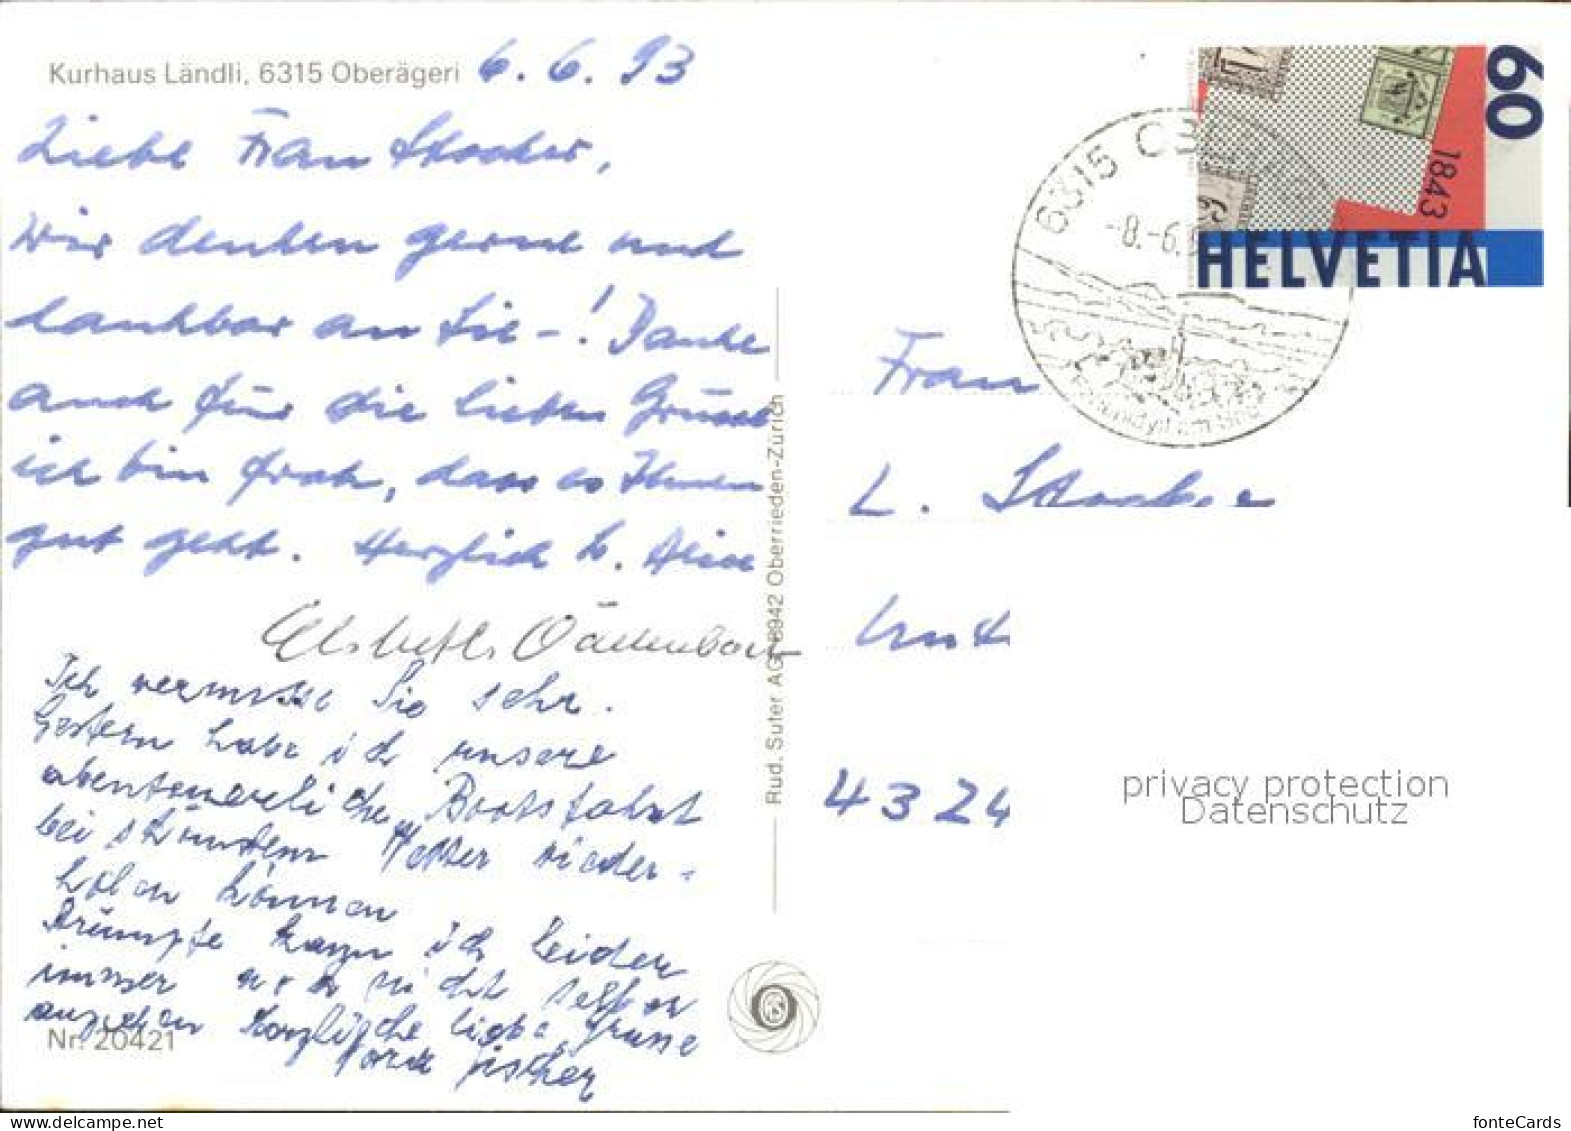 Kurhaus Ländli, 6315 Oberägeri 6.6.93
Liebe Frau Stocker,
Wir denken gerne und
dankbar an Sie -! Danke
auch für die lieben Grüsse
ich bin froh, dass es Ihnen
gut geht. Herzlich
Elsbeth
Ich vermisse Sie sehr.
Gestern habe ich unsere
abenteuerliche Bootsfahrt
bei schönstem Wetter wieder-
holen können
Strümpfe kann ich leider
immer noch nicht selber
anziehen Herzliche liebe Grüsse
Fischer
Nr. 20421
Rud. Suter AG 8942 Oberrieden-Zürich
6315
-8.-6.
1843
60
HELVETIA
Frau
L. Stocker
4324
privacy protection
Datenschutz
fonteCards